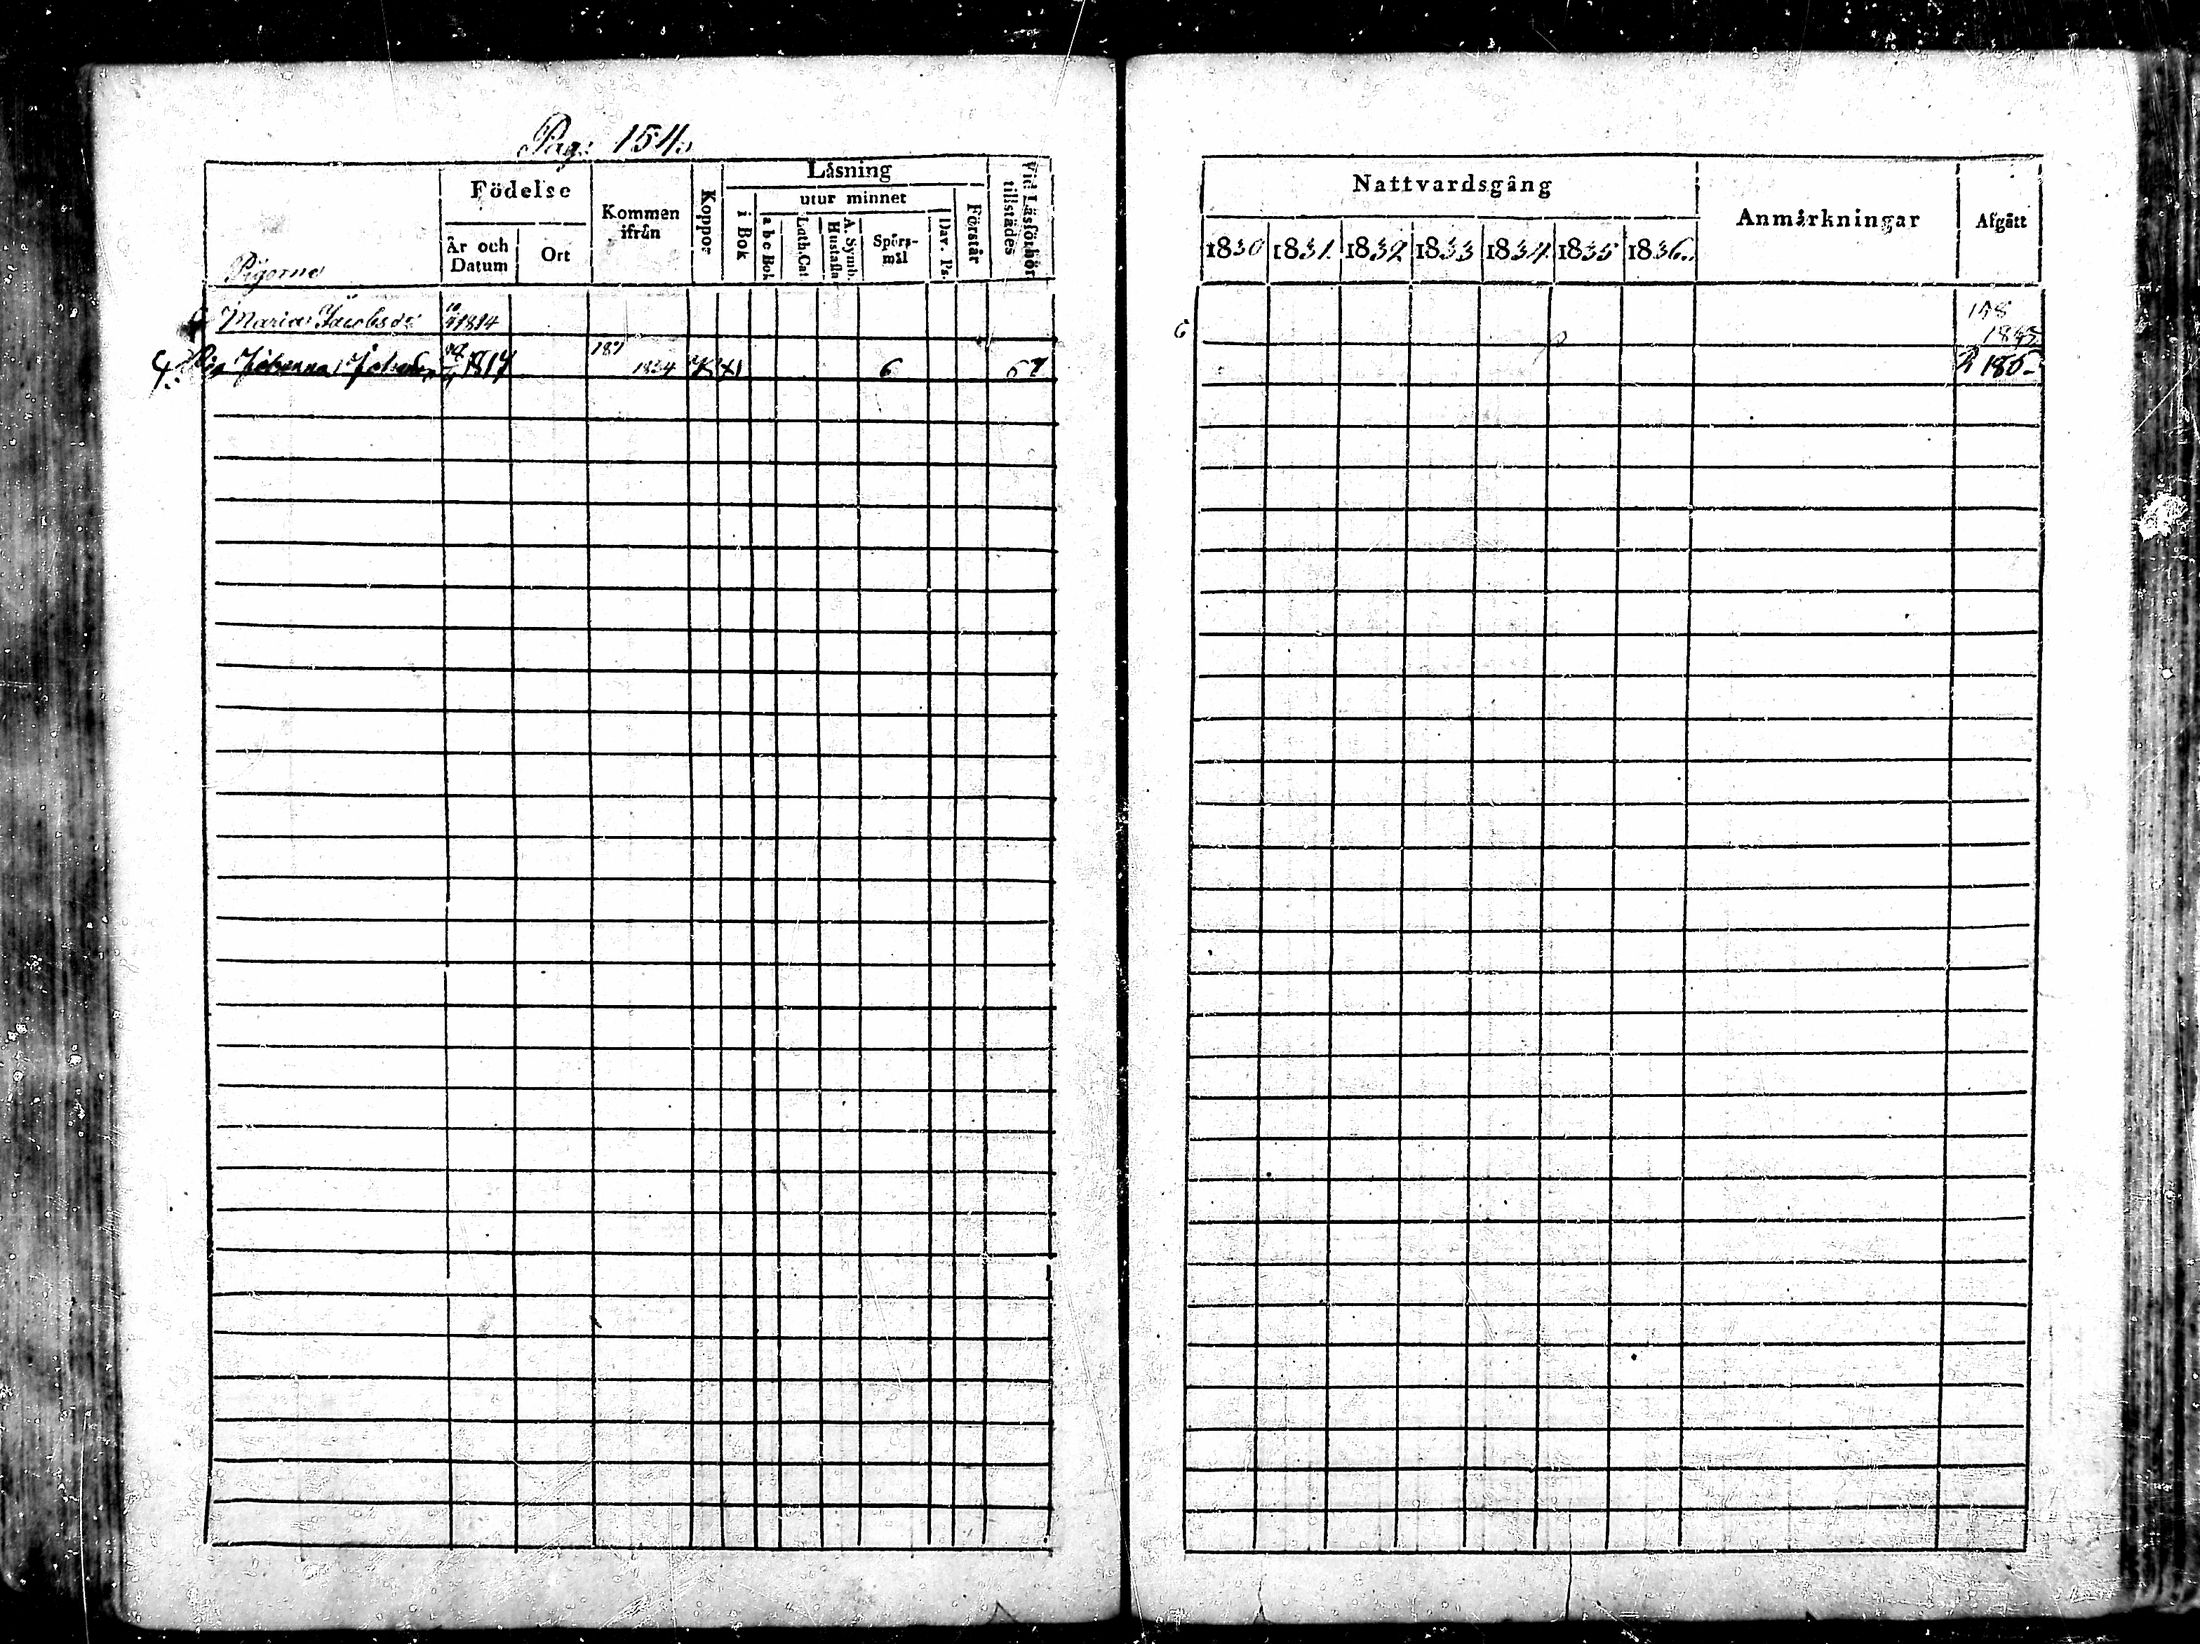 Pag: 154.
Pigorne
Födelse
År och Datum
Ort
Kommen ifrån
Koppor
Läsning
i Bok
utur minnet
a b c Bok
Luth. Cat
A. Symb. Hustafla
Spörsmål
Dav. Ps.
Förstår
Vid Läsförhör tillstädes
Maria Jacobsdr 10 1814
Johanna 1817 187 1834 6 67
Nattvardsgång
1830 1831 1832 1833 1834 1835 1836
Anmärkningar
Afgått
6
158